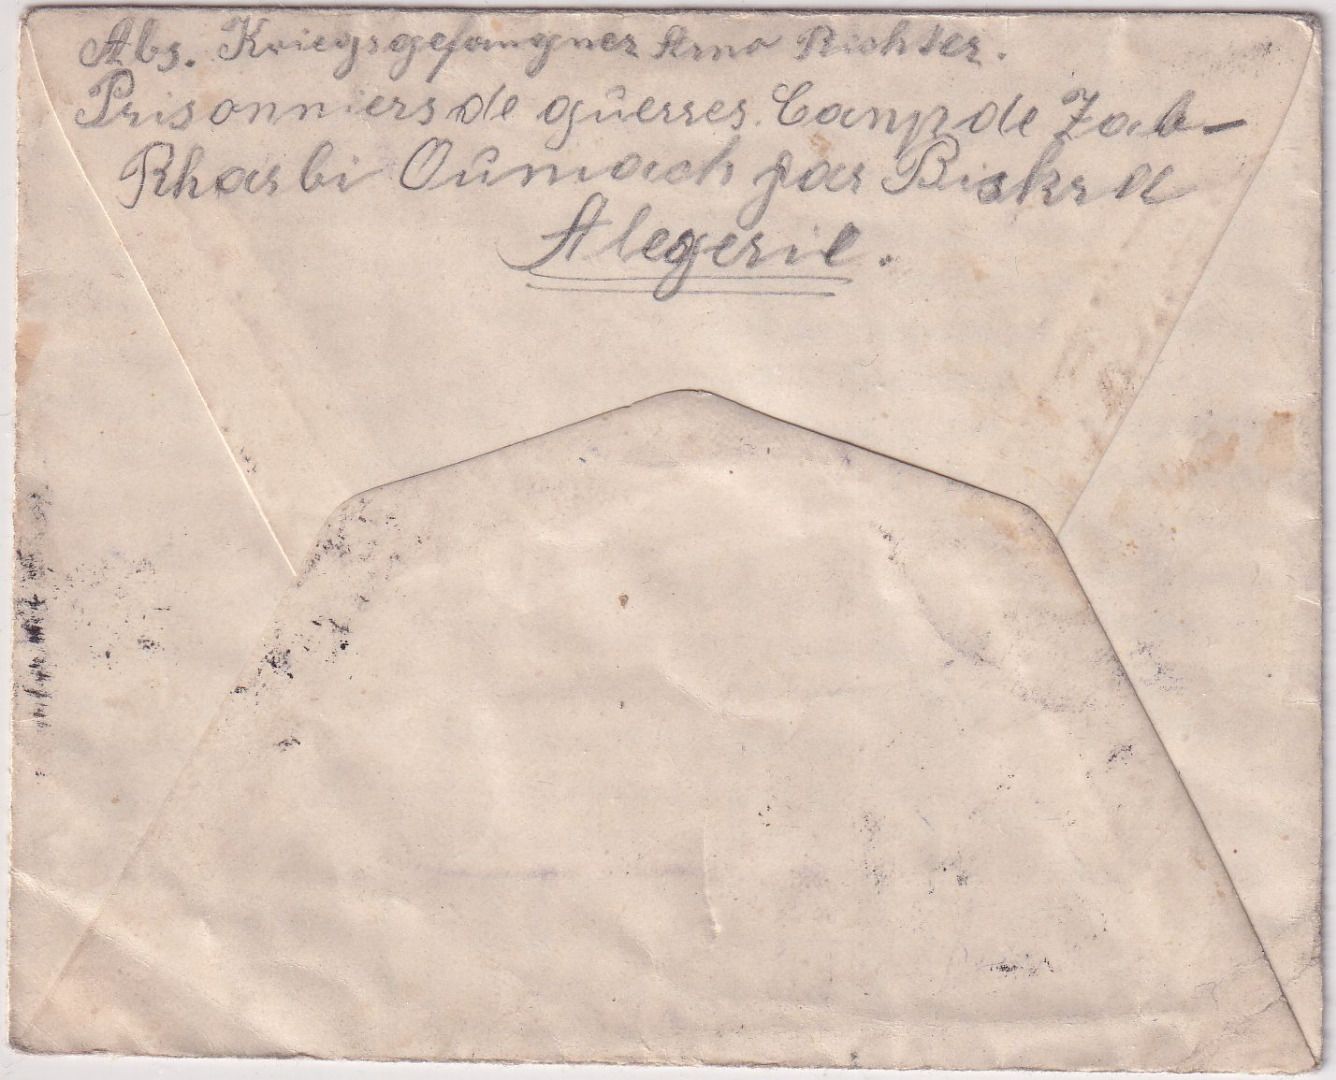 Abs. Kriegsgefangner Arno Richter.
Prisonniers de gûerres. Camp de Zab-
Rharbi Oûmach par Biskra
Alegerie.